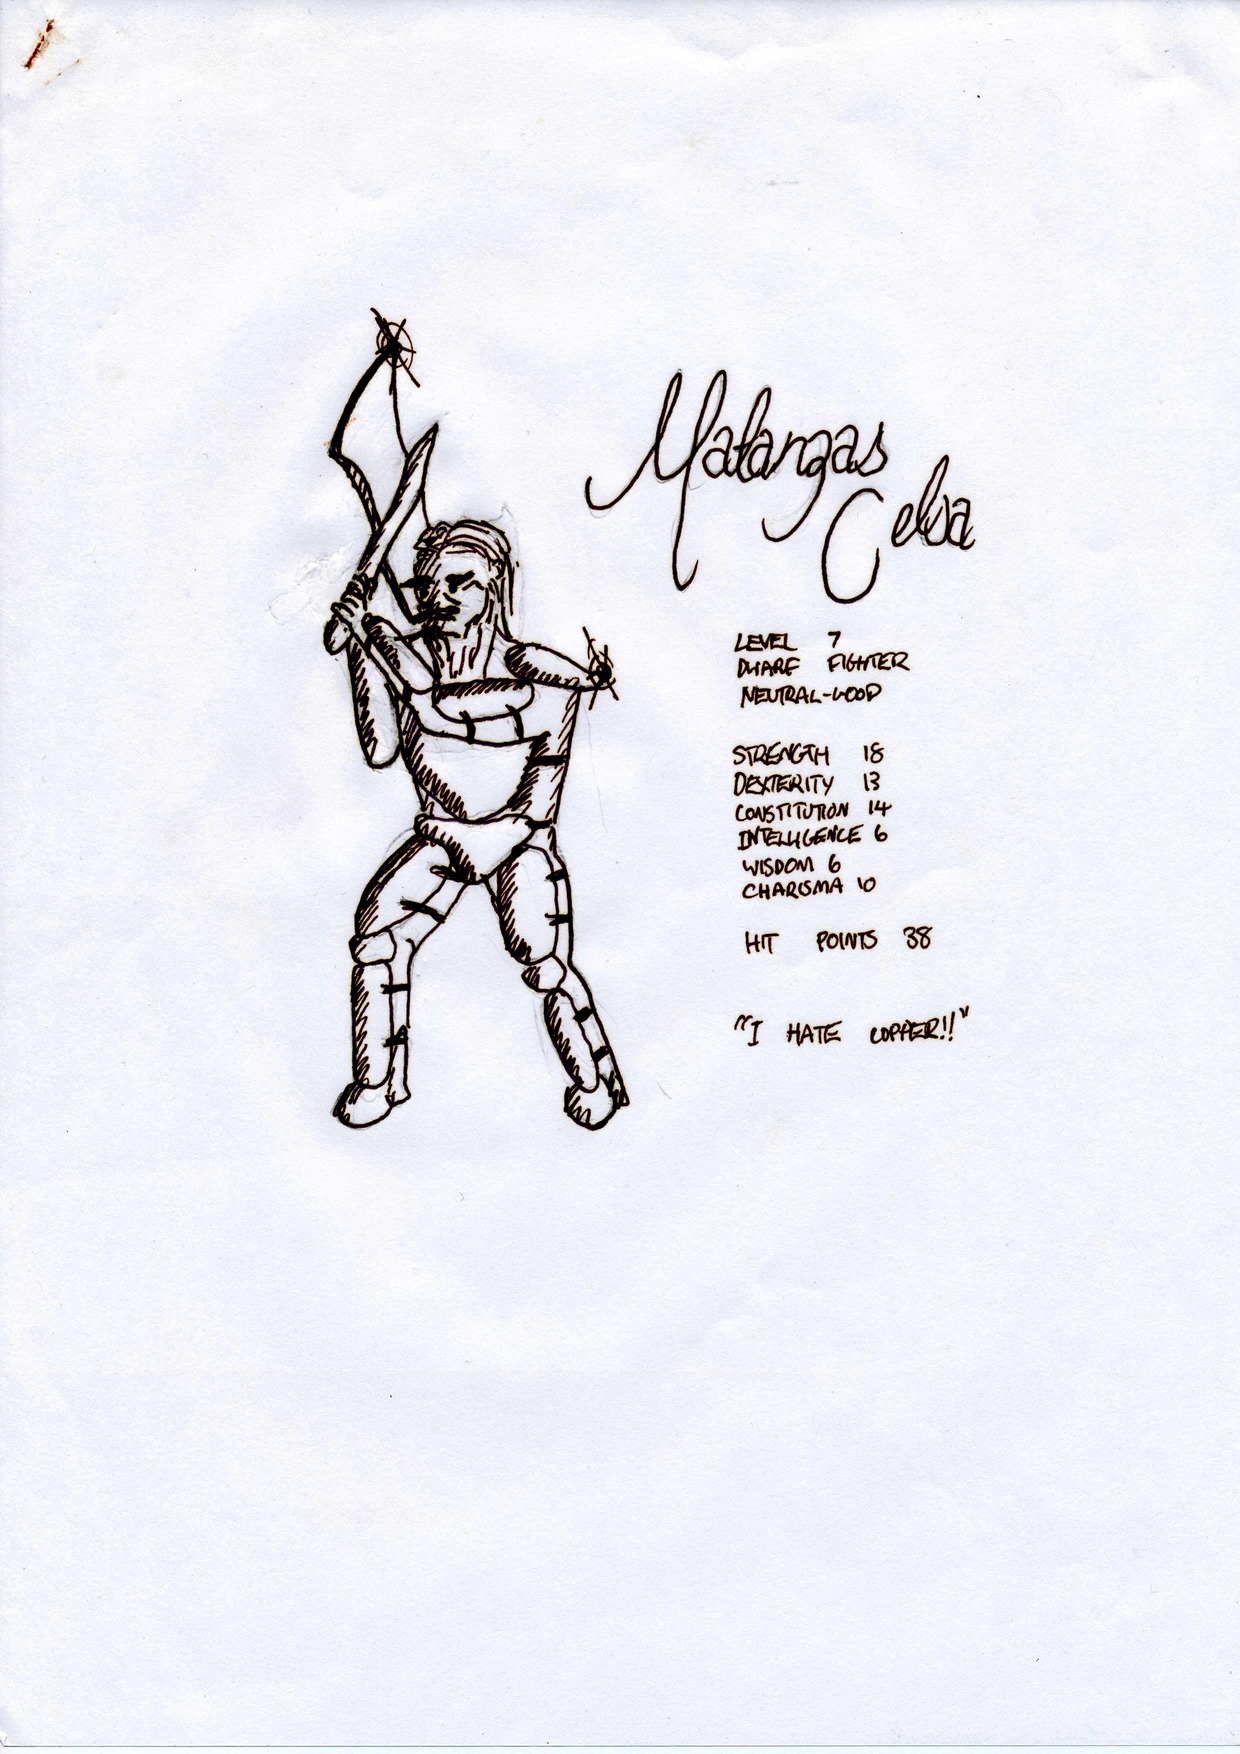 Matangas
Celva
LEVEL 7
DWARF FIGHTER
NEUTRAL-GOOD
STRENGTH 18
DEXTERITY 13
CONSTITUTION 14
INTELLIGENCE 6
WISDOM 6
CHARISMA 10
HIT POINTS 38
"I HATE COPPER!!"